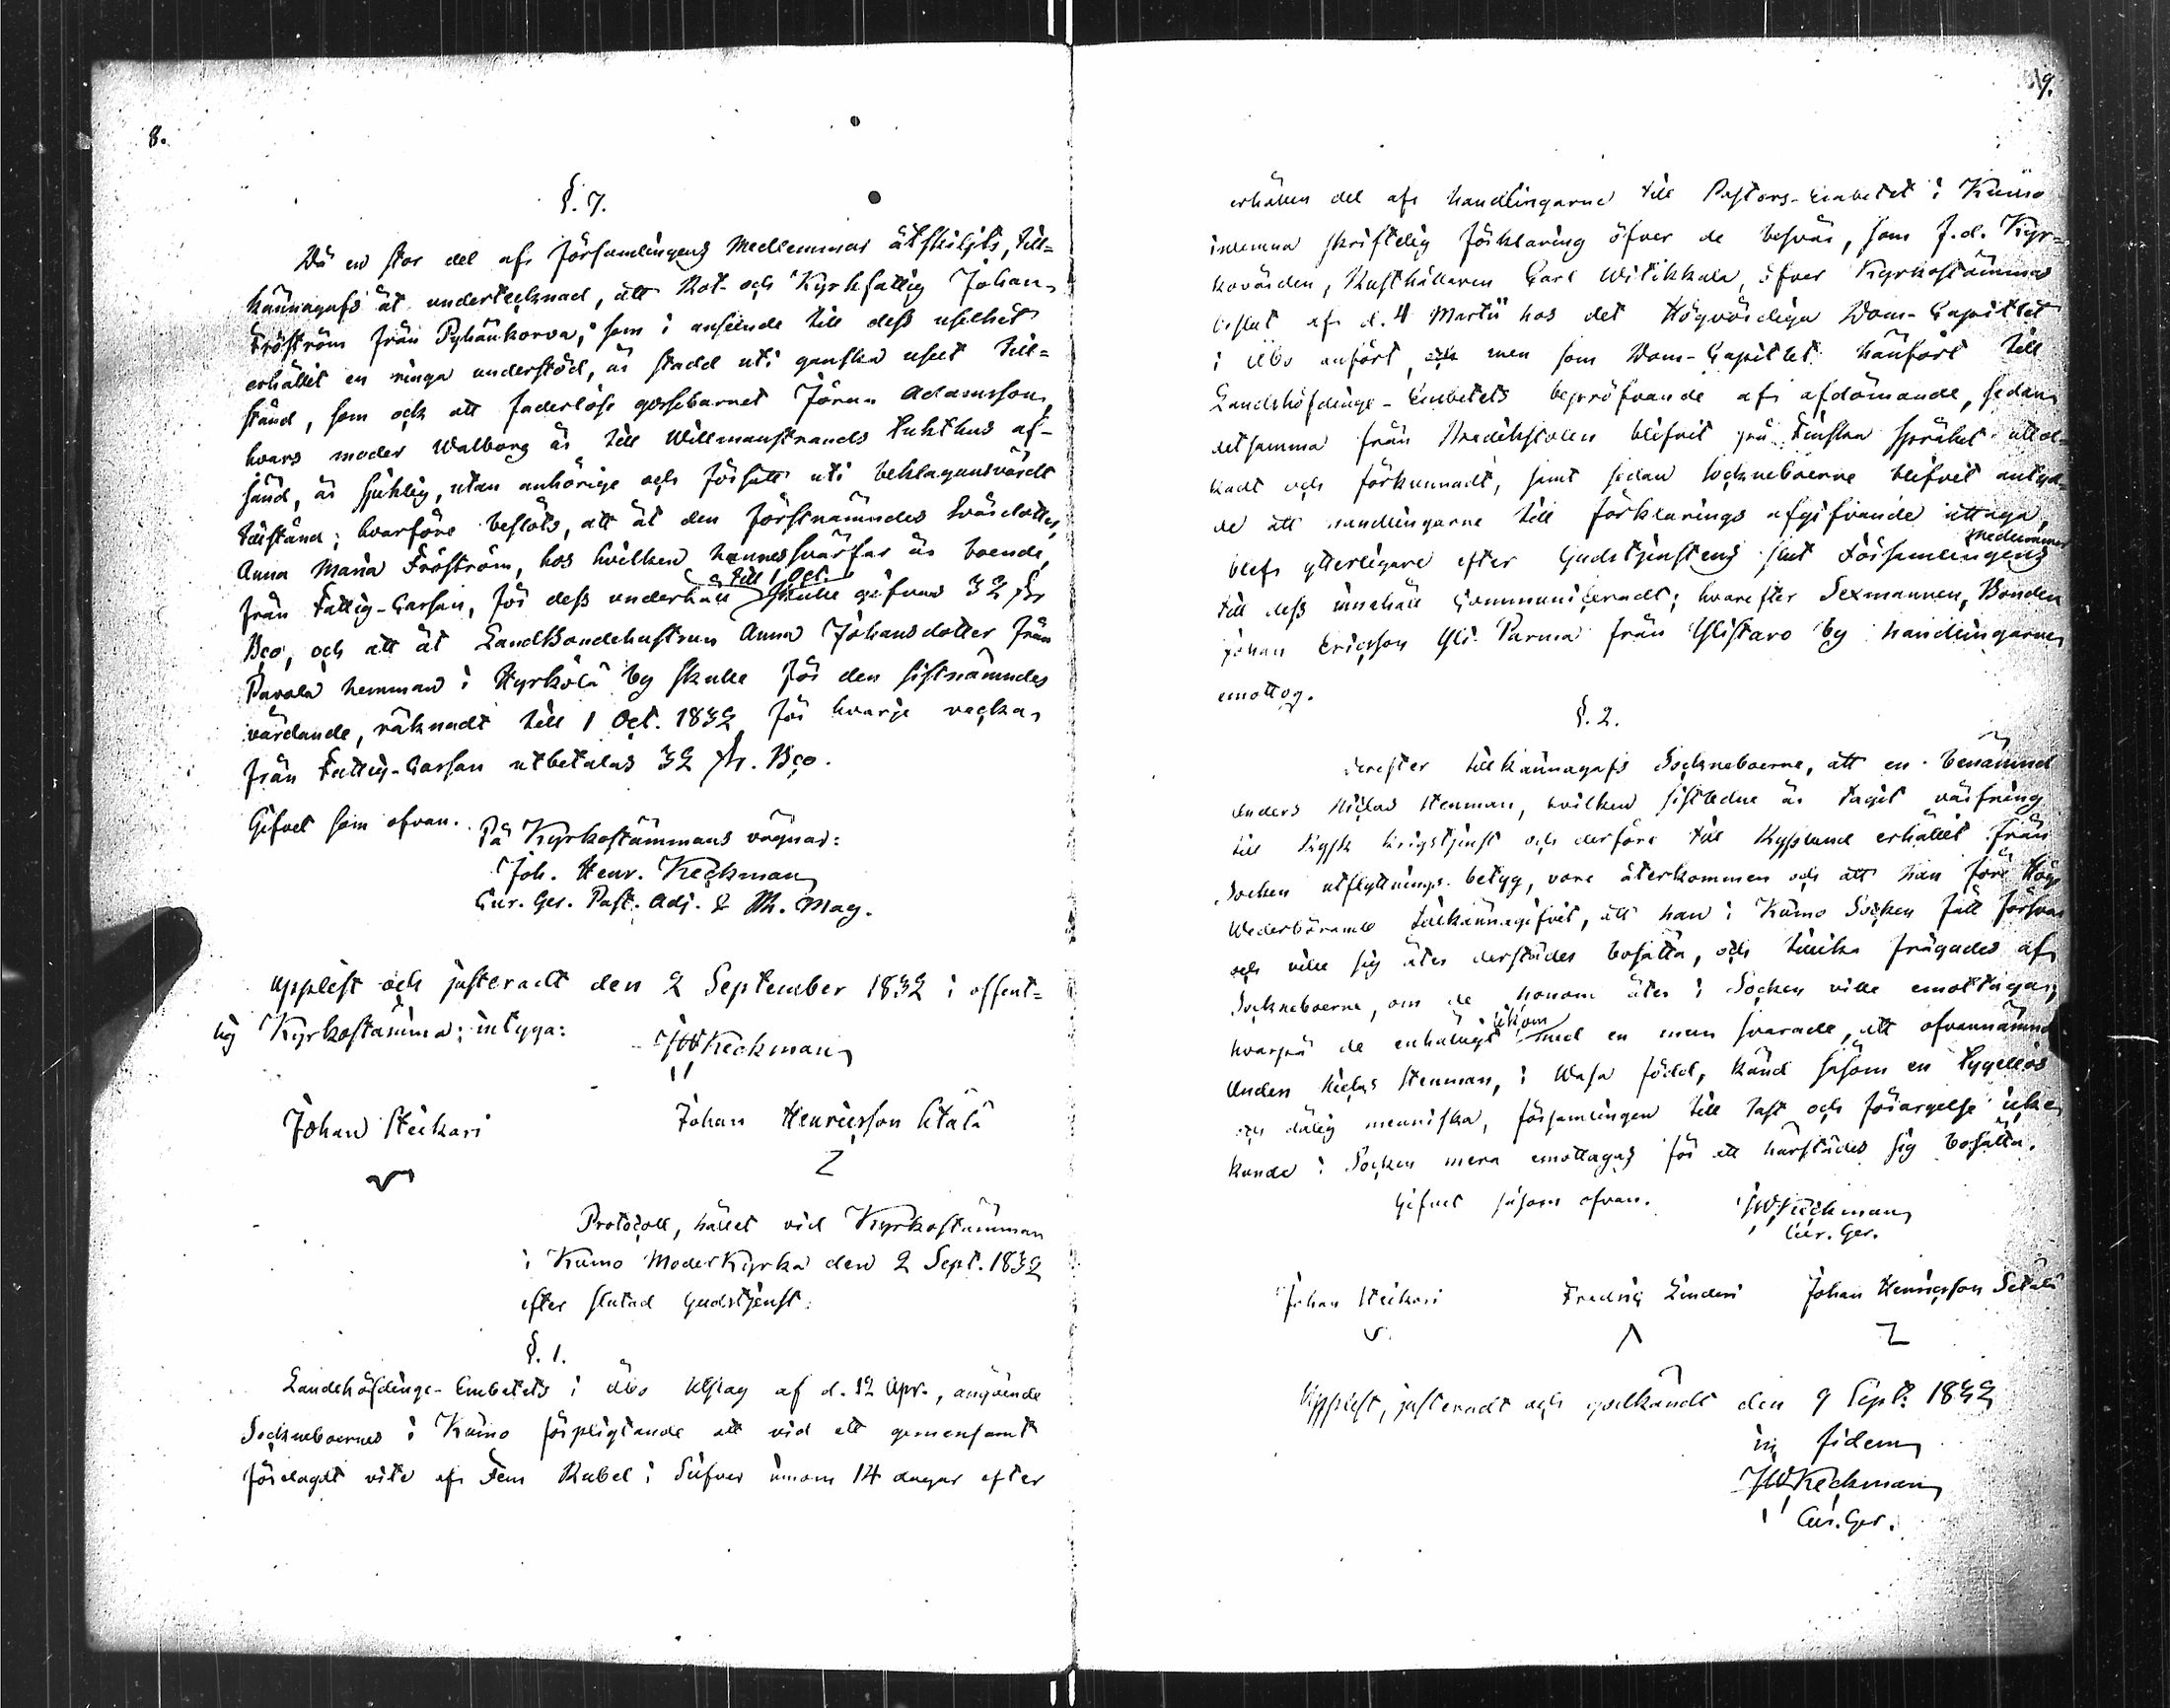 8.
§. 7.
Då en stor del af Församlingens Medlemmar åtskiljts, till-
kännagafs åt undertecknad, att Rot- och Kyrkfattig Johan
Fröström från Pyhänkorva, som i anseende till dess uselhet
erhållit en ringa understöd, är stadd uti ganska uselt till-
stånd, som ock att faderlöse gossebarnet Jöran Adamsson,
hvars moder Walborg är till Willmanstrands Tukthus af-
sänd, är sjuklig, utan anhörige och försatt uti beklagansvärdt
tillstånd; hvarföre beslöts, att åt den förstnämndes Svärdotter,
Anna Maria Fröström, hos hvilken hennes svärfar är boende,
från Fattig-Cassan, för dess underhåll till 1 Oct. skulle gifvas 32 sk.
Bco, och att åt Landbondehustrun Anna Johansdotter från
Pavola hemman i Kyrkölä by skulle för den sistnämndes
vårdande, räknadt till 1 Oct. 1832 för hvarje vecka
från Fattig-Cassan utbetalas 32 sk. Bco.
Gifvet som ofvan.
På Kyrkostämmans vägnar:
Joh. Henr. Keckman
Cur. Ger. Past. Adj. & Ph. Mag.
Uppläst och justeradt den 2 September 1832 i offent-
lig Kyrkostämma; intyga:
JHKeckman
Johan Steikari
Johan Henricsson Sitälä
Protocoll, hållet vid Kyrkostämman
i Kumo Moderkyrka den 2 Sept. 1832
efter slutad Gudstjenst.
§. 1.
Landshöfdinge-Embetets i Åbo Utslag af d. 12 Apr., angående
Sockneboernes i Kumo förpligtande att vid ett gemensamt
förelagdt vite af Fem Rubel i Silfver innom 14 dagar efter
9.
erhållen del af handlingarne till Pastors-Embetet i Kumo
inlemna skriftelig förklaring öfver de besvär, som f.d. Kyr-
kovärden, Rusthållaren Carl Witikkala, öfver Kyrkostämmas
beslut af d. 4 Martii hos det Högvördiga Dom-Capitlet
i Åbo anfört, men som Dom-Capitlet hänfört till
Landshöfdinge-Embetets bepröfvande af afdömande, sedan
detsamma från Predikstolen blifvit på Finska Språket uttol-
kadt och förkunnadt, samt sedan Sockneboerne blifvit antyd-
de att handlingarne till förklarings afgifvande uttaga,
blef ytterligare efter Gudstjenstens slut Församlingens Medlemmar
till dess innehåll Communiceradt; hvarefter Sexmannen, Bonden
Johan Ericsson Yli Parma från Ylistaro by handlingarne
emottog.
§. 2.
Derefter tillkännagafs Sockneboerne, att en benämnd
Anders Niclas Stenman, hvilken sistledne år tagit värfning
till Rysk krigstjenst och derföre till Ryssland erhållit från
Socken utflyttnings-betyg, vore återkommen och att han före Hög-
Wederbörande tillkännagifvit, att han i Kumo Socken fått försvar
och ville sig åter derstädes bosätta, och tillika frågades af
Sockneboerne, om de honom åter i Socken ville emottaga,
hvarpå de enhälligt liksom med en mun svarade, att ofvannämnd
Anders Niclas Stenman, i Wasa född, känd såsom en tygellös
och dålig menniska, församlingen till last och förargelse icke
kunde i Socken mera emottagas för att härstädes sig bosätta.
Gifvet såsom ofvan.
JHKeckman
Cur. Ger.
Johan Steikari
Fredric Linderi
Johan Henricsson Setälä
Uppläst, justeradt och godkändt den 9 Sept. 1832
in fidem
JHKeckman
Cur. Ger.